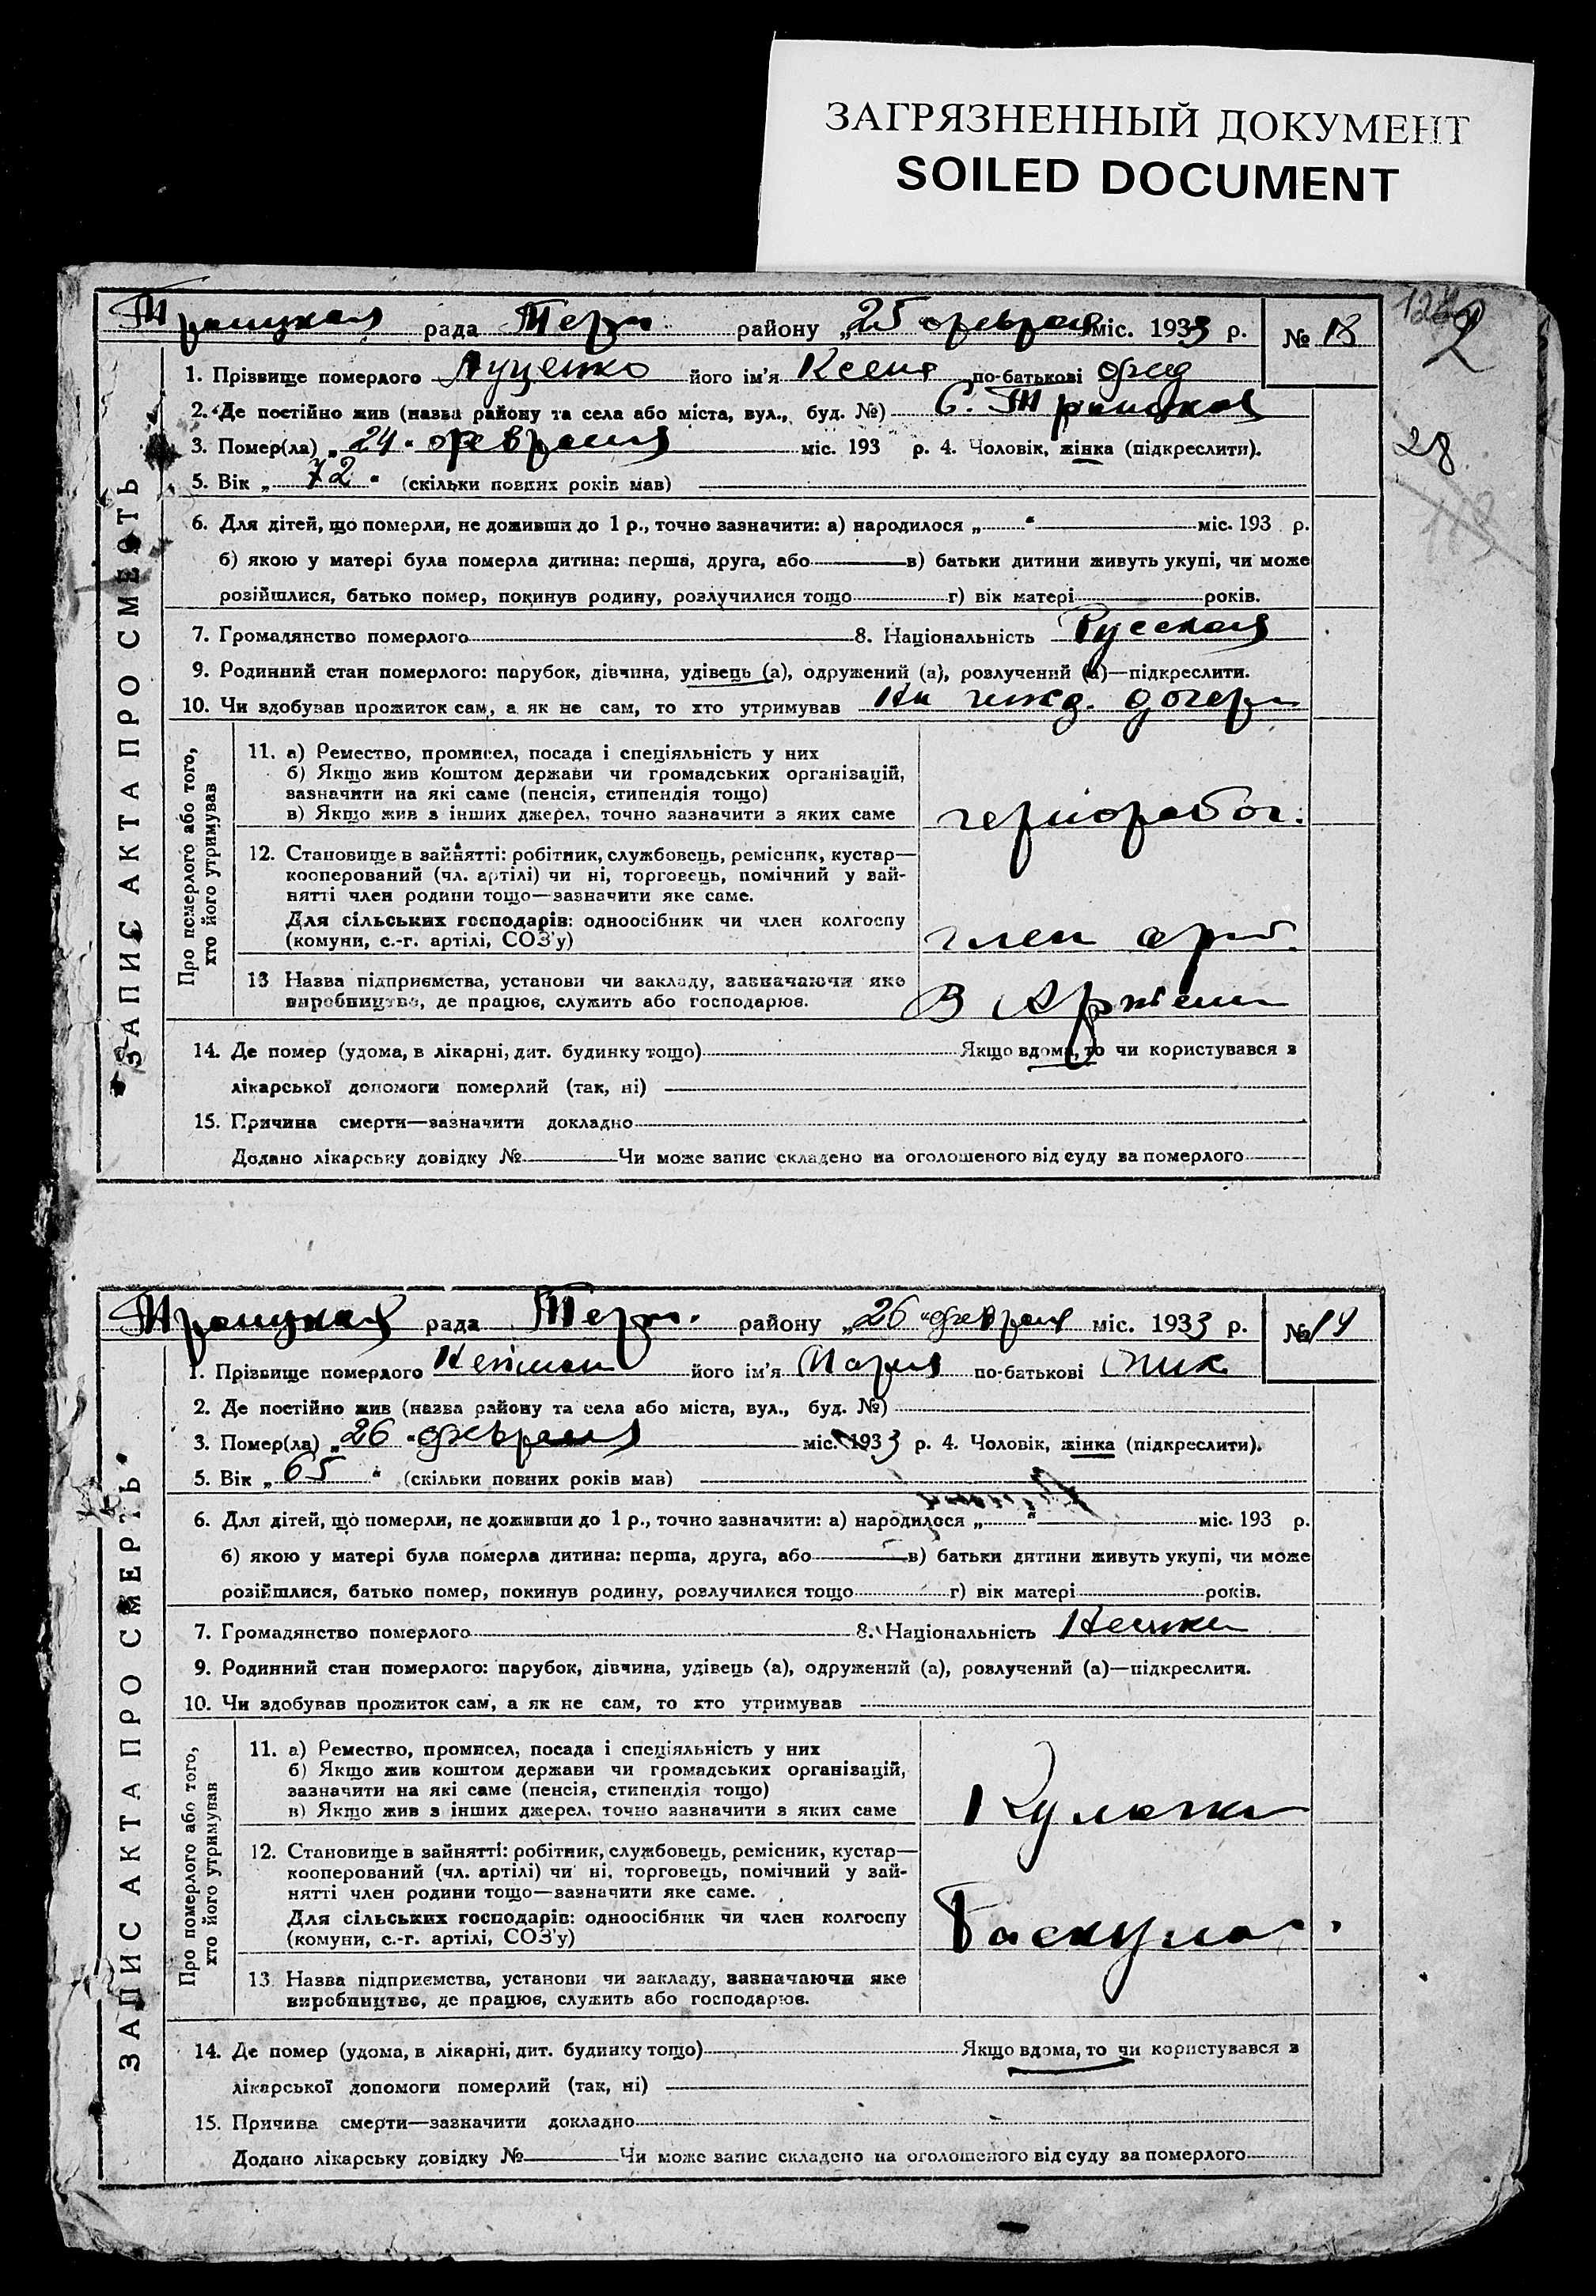 ЗАГРЯЗНЕННЫЙ ДОКУМЕНТ
SOILED DOCUMENT
Троицкая рада Терп. району „25 февраля міс. 1933 р. № 18
2
1. Прізвище померлого Луценко його ім'я Ксения по-батькові Фед
2. Де постійно жив (назва району та села або міста, вул., буд. №) С. Троицкая
3. Помер(ла) „24" февраля міс. 193 р. 4. Чоловік, жінка (підкреслити).
28
5. Вік „72" (скільки повних років мав)
6. Для дітей, що померли, не доживши до 1 р., точно зазначити: а) народилося „ " міс. 193 р.
б) якою у матері була померла дитина: перша, друга, або в) батьки дитини живуть укупі, чи може
розійшлися, батько помер, покинув родину, розлучилися тощо г) вік матері років.
7. Громадянство померлого 8. Національність Русская
9. Родинний стан померлого: парубок, дівчина, удівець (а), одружений (а), розлучений (а)—підкреслити.
10. Чи здобував прожиток сам, а як не сам, то хто утримував На ижд. дочери
ЗАПИС АКТА ПРО СМЕРТЬ
Про померлого або того, хто його утримував
11. а) Ремество, промисел, посада і спеціяльність у них
б) Якщо жив коштом держави чи громадських організацій,
зазначити на які саме (пенсія, стипендія тощо)
в) Якщо жив з інших джерел, точно зазначити з яких саме чернорабоч.
12. Становище в зайнятті: робітник, службовець, ремісник, кустар—
кооперований (чл. артілі) чи ні, торговець, помічний у зай-
нятті член родини тощо—зазначити яке саме.
Для сільських господарів: одноосібник чи член колгоспу
(комуни, с.-г. артілі, СОЗ'у) член арт.
13 Назва підприємства, установи чи закладу, зазначаючи яке
виробництво, де працює, служить або господарює. В Артели
14. Де помер (удома, в лікарні, дит. будинку тощо) Якщо вдома, то чи користувався з
лікарської допомоги померлий (так, ні)
15. Причина смерти—зазначити докладно
Додано лікарську довідку № Чи може запис складено на оголошеного від суду за померлого
Троицкая рада Терп. району „26 "февраля міс. 1933 р. № 19
1. Прізвище померлого його ім'я Мария по-батькові
2. Де постійно жив (назва району та села або міста, вул., буд. №)
3. Помер(ла) „26 "февраля міс. 1933 р. 4. Чоловік, жінка (підкреслити).
5. Вік „65" (скільки повних років мав)
6. Для дітей, що померли, не доживши до 1 р., точно зазначити: а) народилося „ " міс. 193 р.
б) якою у матері була померла дитина: перша, друга, або в) батьки дитини живуть укупі, чи може
розійшлися, батько помер, покинув родину, розлучилися тощо г) вік матері років.
7. Громадянство померлого 8. Національність Немка
9. Родинний стан померлого: парубок, дівчина, удівець (а), одружений (а), розлучений (а)—підкреслити.
10. Чи здобував прожиток сам, а як не сам, то хто утримував
ЗАПИС АКТА ПРО СМЕРТЬ
Про померлого або того, хто його утримував
11. а) Ремество, промисел, посада і спеціяльність у них
б) Якщо жив коштом держави чи громадських організацій,
зазначити на які саме (пенсія, стипендія тощо)
в) Якщо жив з інших джерел, точно зазначити з яких саме Кулачка
12. Становище в зайнятті: робітник, службовець, ремісник, кустар—
кооперований (чл. артілі) чи ні, торговець, помічний у зай-
нятті член родини тощо—зазначити яке саме.
Для сільських господарів: одноосібник чи член колгоспу
(комуни, с.-г. артілі, СОЗ'у)
13 Назва підприємства, установи чи закладу, зазначаючи яке
виробництво, де працює, служить або господарює.
14. Де помер (удома, в лікарні, дит. будинку тощо) Якщо вдома, то чи користувався з
лікарської допомоги померлий (так, ні)
15. Причина смерти—зазначити докладно
Додано лікарську довідку № Чи може запис складено на оголошеного від суду за померлого